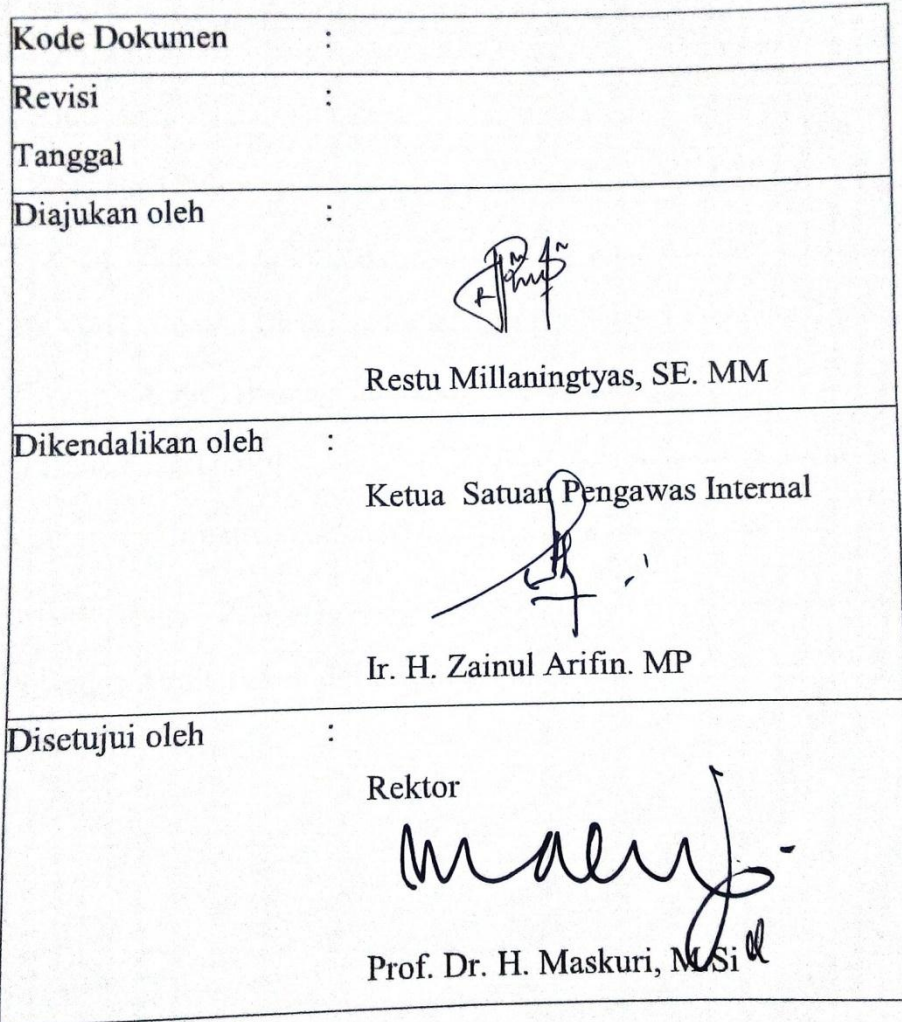 Kode Dokumen :
Revisi :
Tanggal
Diajukan oleh :
Restu Millaningtyas, SE. MM
Dikendalikan oleh :
Ketua Satuan Pengawas Internal
Ir. H. Zainul Arifin. MP
Disetujui oleh :
Rektor
Prof. Dr. H. Maskuri, M.Si